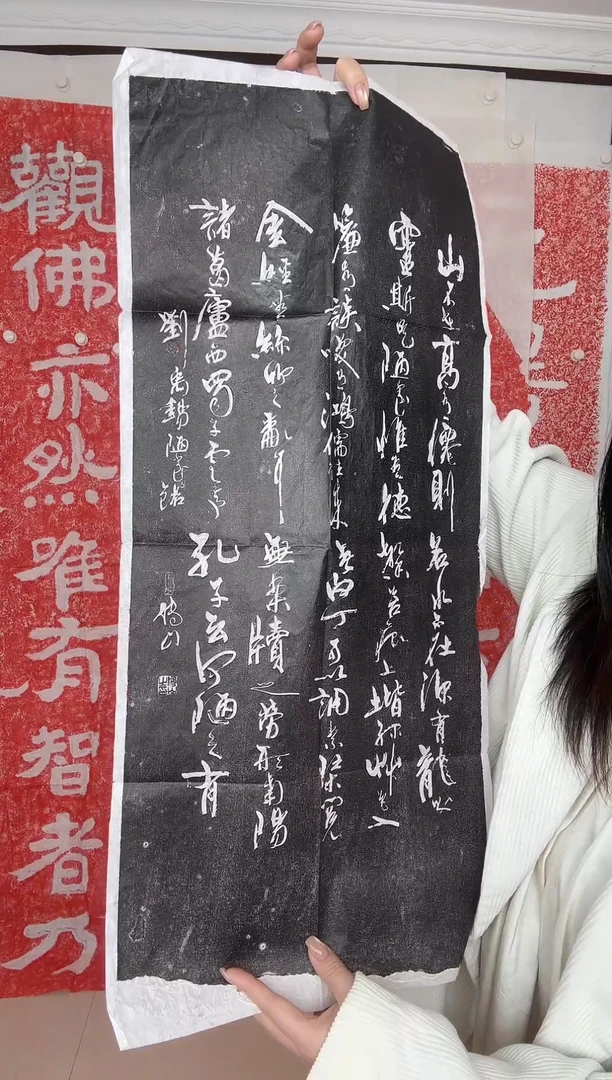 山不在高有僊則名水不在深有龍則
靈斯是陋室惟吾德馨苔痕上堦綠艸色入
簾青談笑有鴻儒往來無白丁可以調素琴閱
金經無絲竹之亂耳無案牘之勞形南陽
諸葛廬西蜀子雲亭孔子云何陋之有
劉禹錫陋室銘
傅山
觀佛亦然唯有智者乃